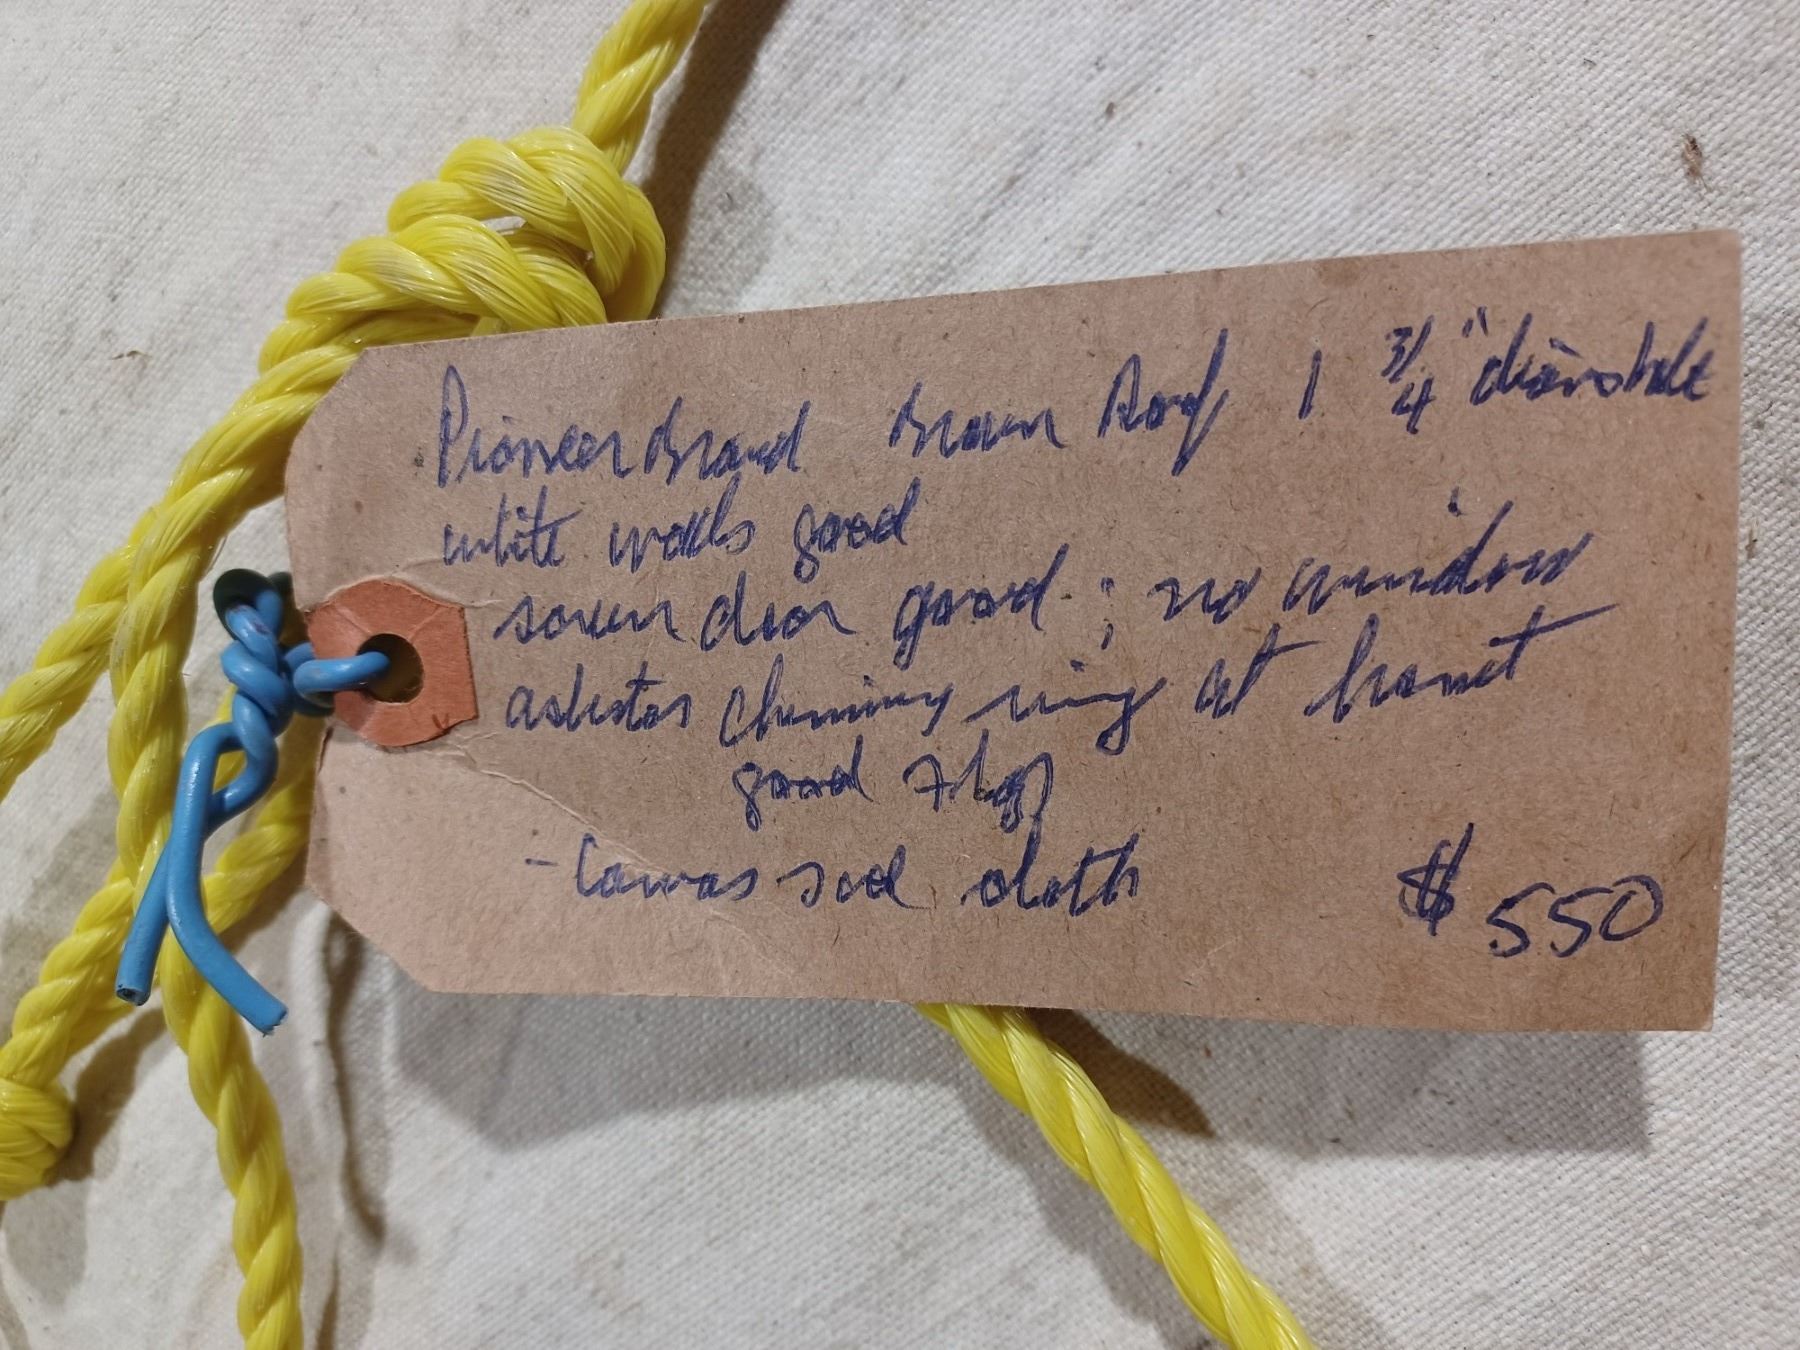 Pioneer Brand Brown Roof 1 3/4" diam hole
white walls good
screen door good ; no window
asbestos chimney ring at front
good flap
- Canvas sod cloth $ 550